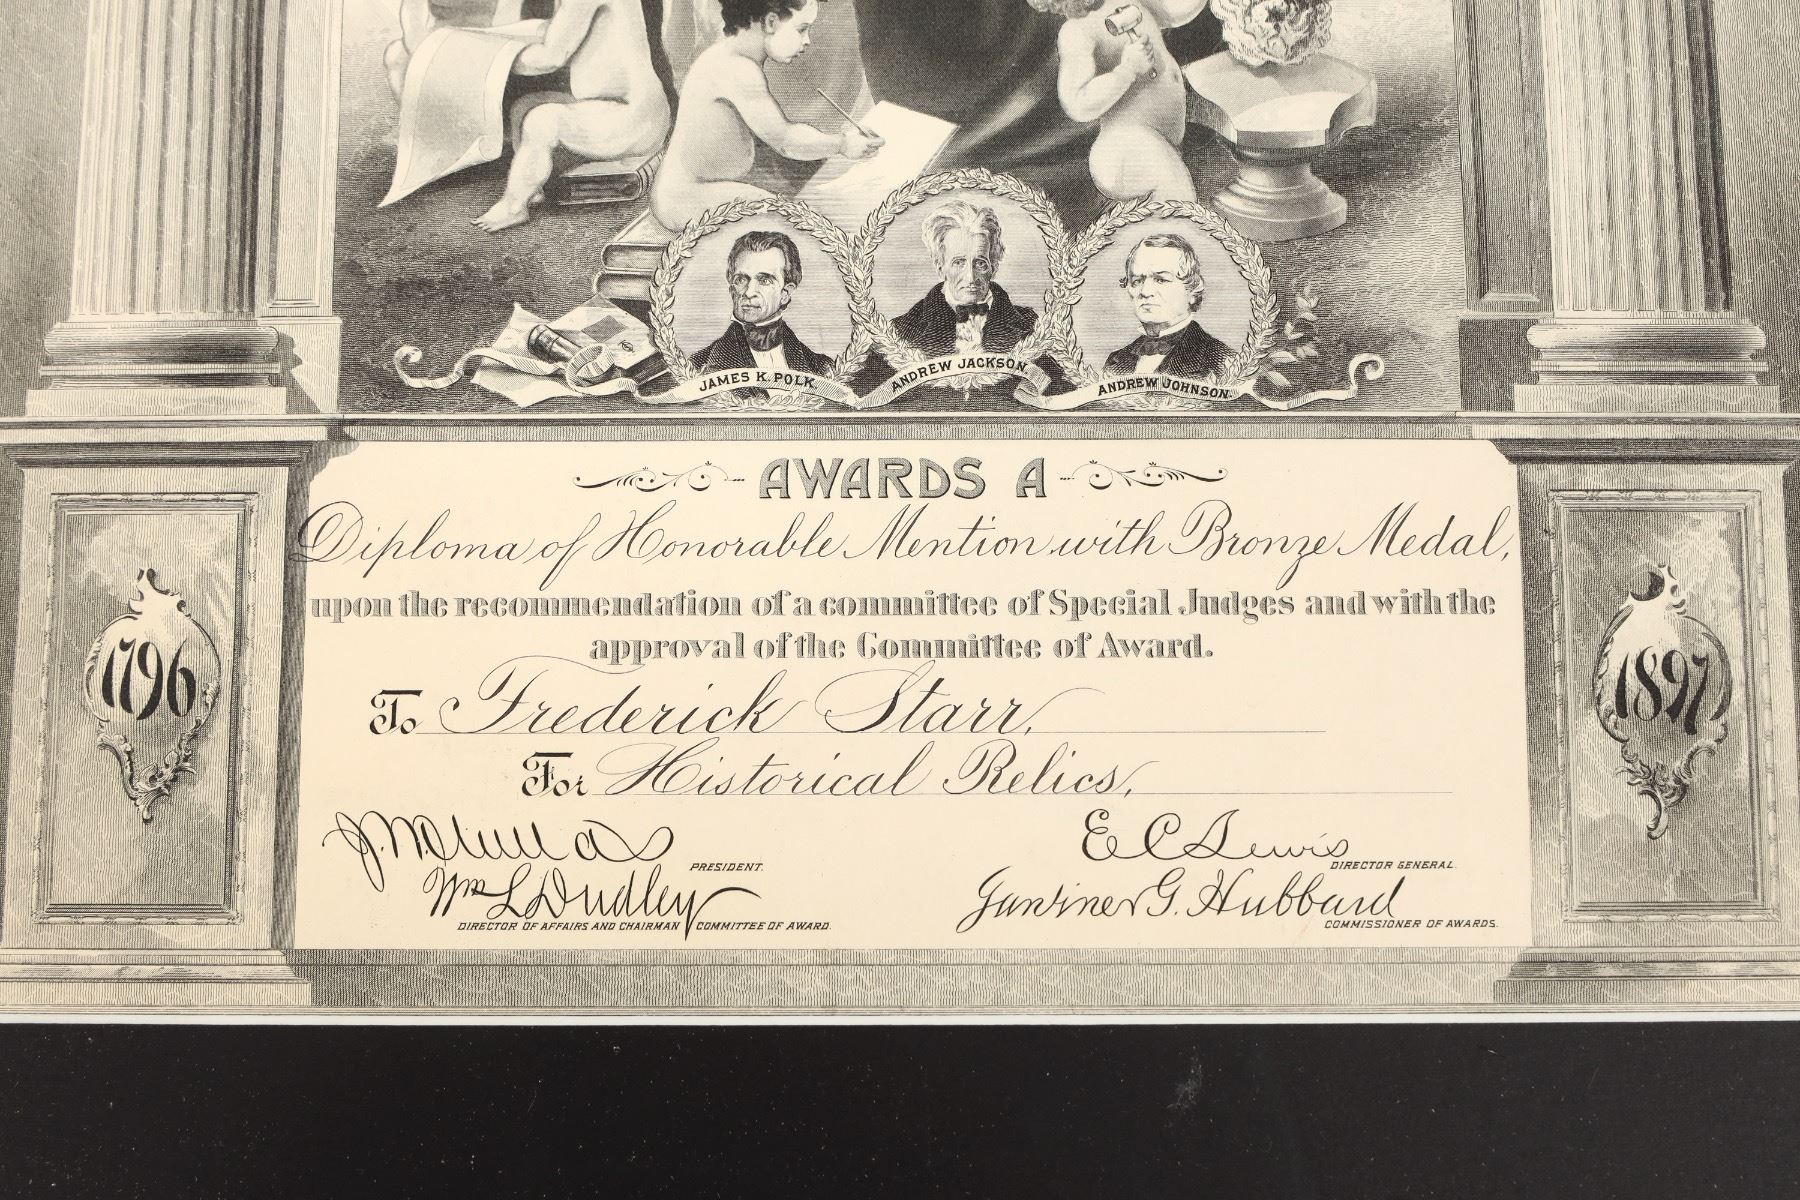 JAMES K. POLK.
ANDREW JACKSON.
ANDREW JOHNSON.
AWARDS A
Diploma of Honorable Mention with Bronze Medal,
upon the recommendation of a committee of Special Judges and with the
approval of the Committee of Award.
1796
1897
To Frederick Starr,
For Historical Relics,
PRESIDENT.
E C Lewis
DIRECTOR GENERAL.
Wm L Dudley
DIRECTOR OF AFFAIRS AND CHAIRMAN COMMITTEE OF AWARD.
Gardiner G. Hubbard
COMMISSIONER OF AWARDS.